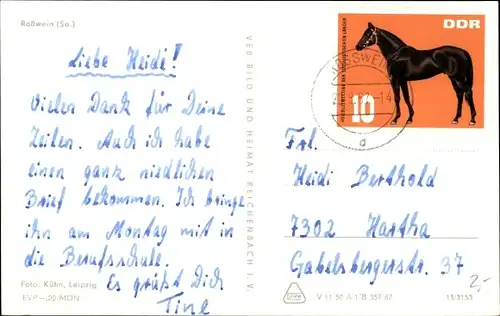 Roßwein (Sa.)
Liebe Heidi!
Vielen Dank für Deine
Zeilen. Auch ich habe
einen ganz niedlichen
Brief bekommen. Ich bringe
ihn am Montag mit in
die Berufsschule.
Es grüßt Dich
Tine
Foto: Kühn, Leipzig
EVP -,20 MDN
VEB BILD UND HEIMAT REICHENBACH I. V.
DDR
10
ROSSWEIN
Frl.
Heidi Berthold
7302 Hartha
Gabelsbergerstr. 37
V 11 50 A 1/B 359/67 15/3153
2,-